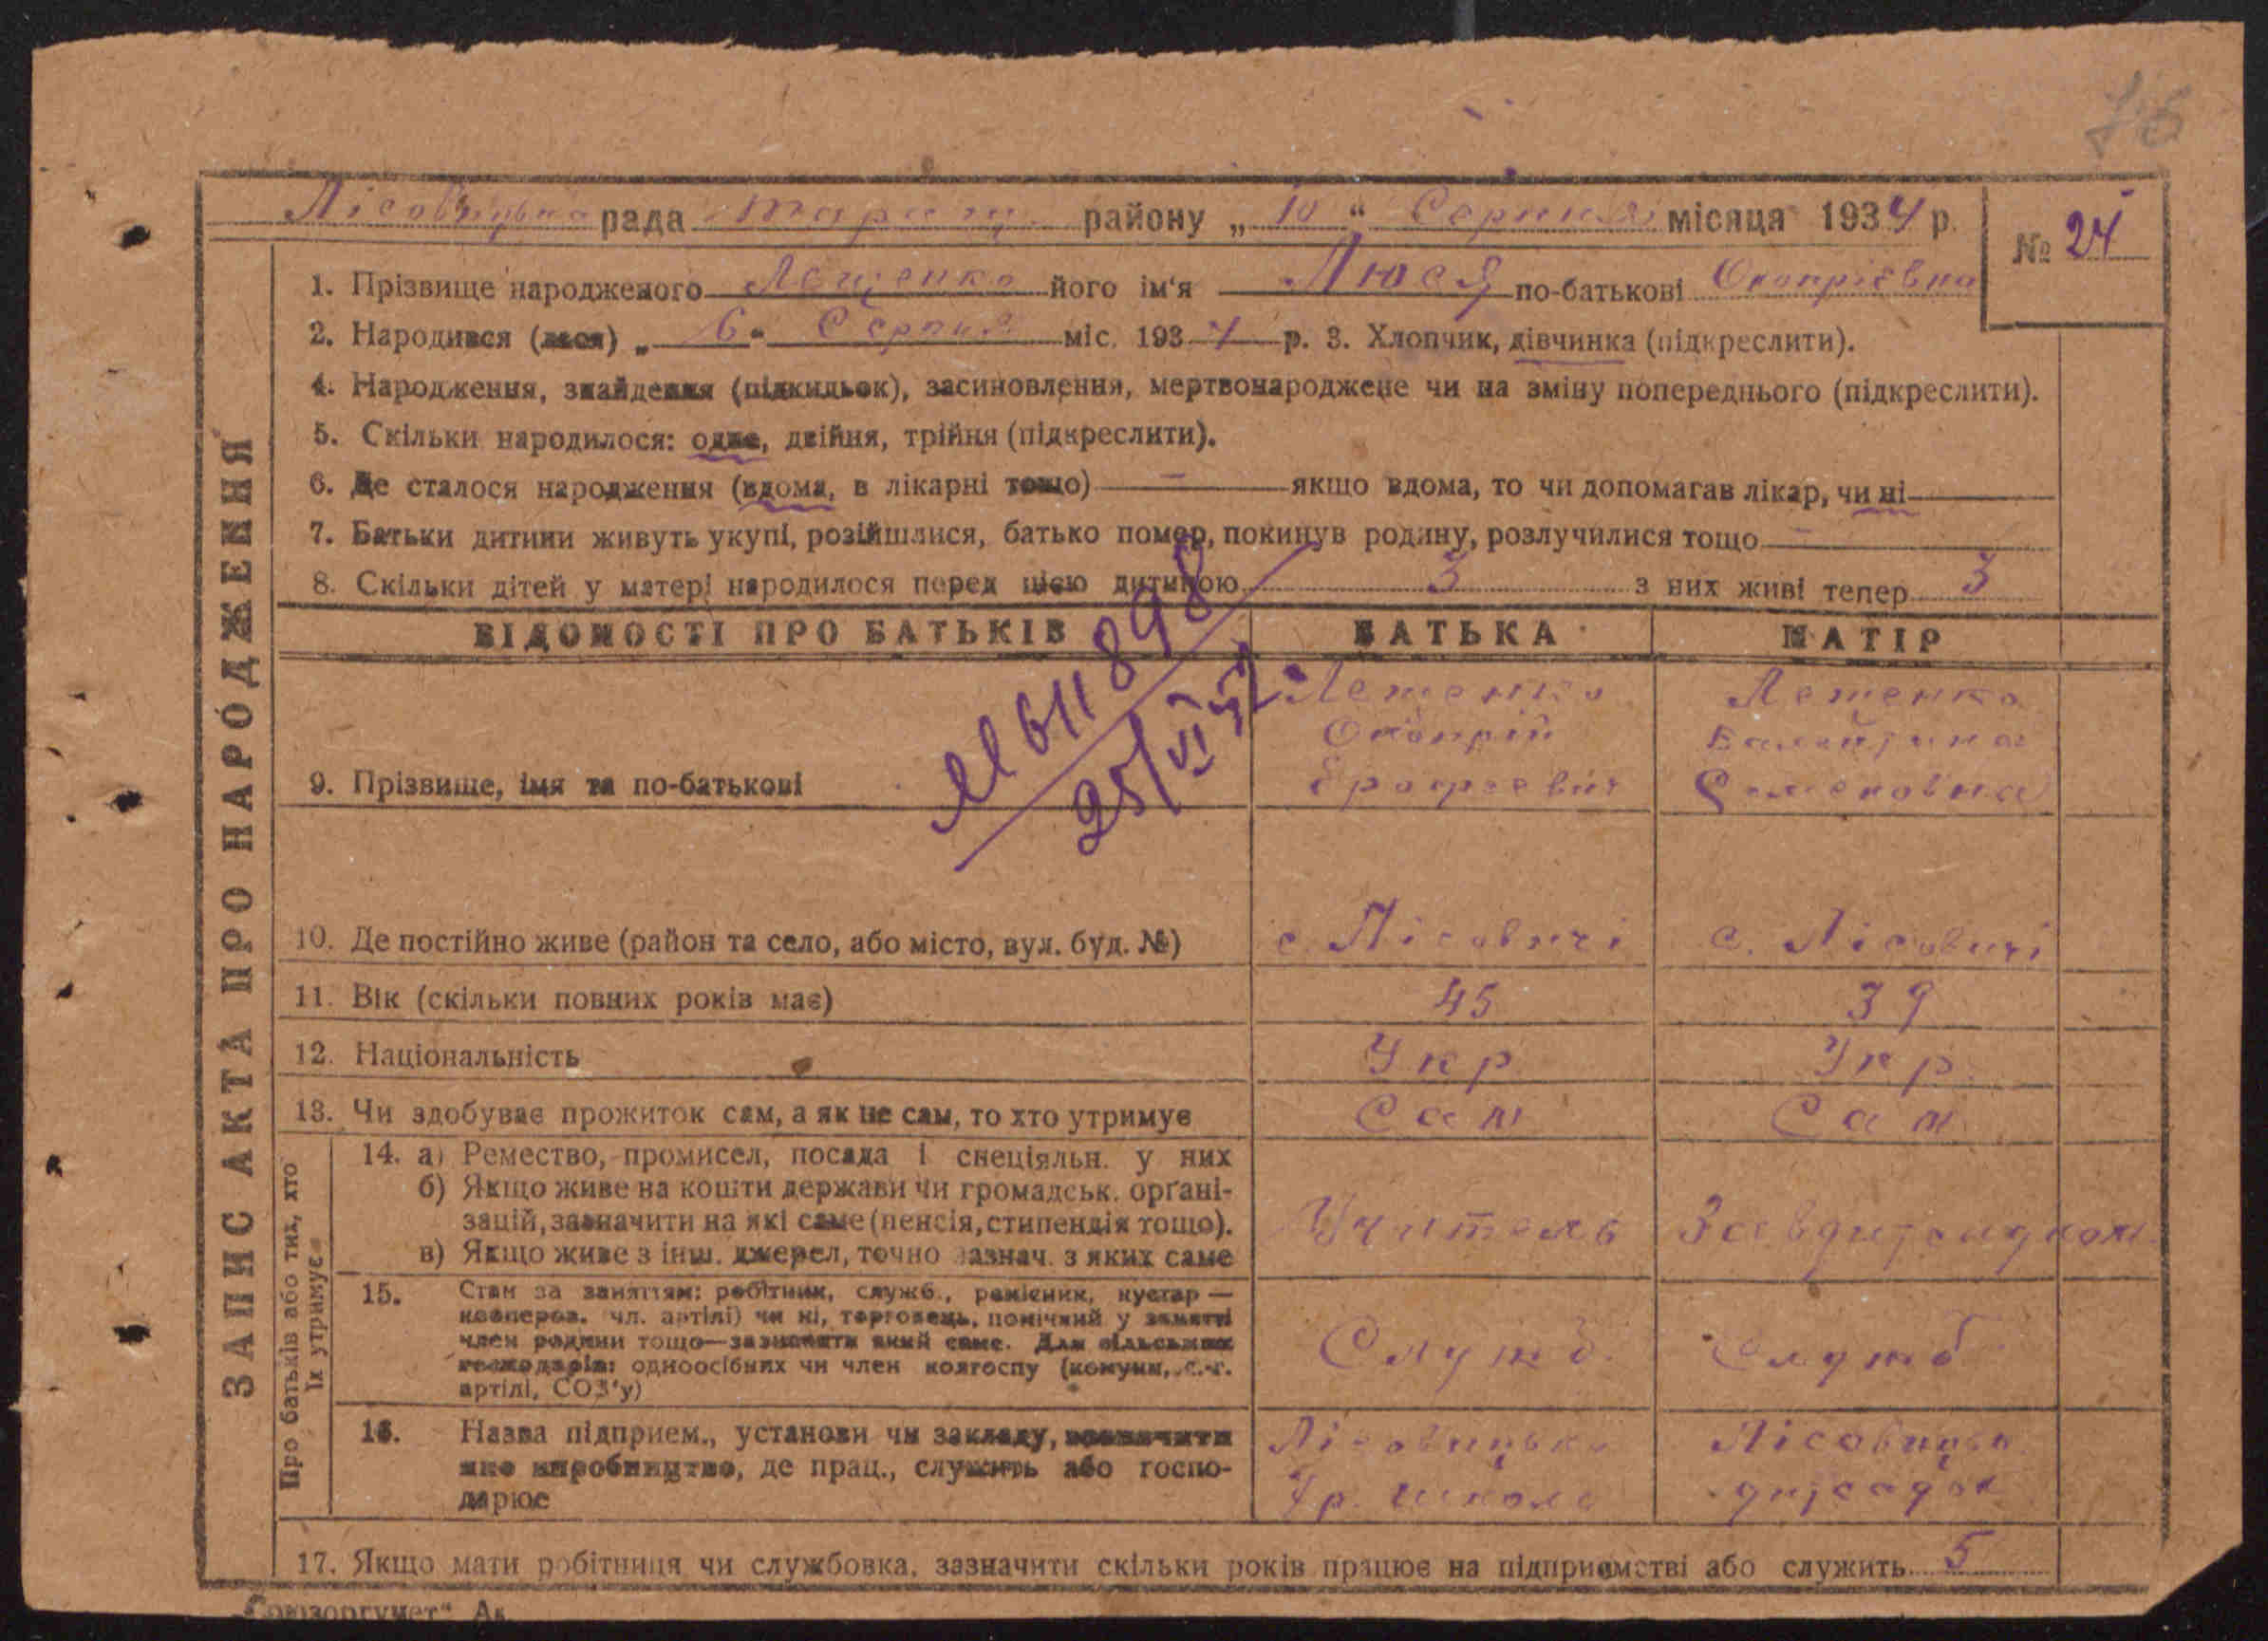 76
Лісовицька рада Таращ. району „ 10 “ Серпня місяця 1934 р.
№ 24
1. Прізвище народженого Лещенко його ім'я Люся по-батькові Оконріевна
2. Народився (лася) „ 6 “ Серпня міс. 1934 р. 3. Хлопчик, дівчинка (підкреслити).
4. Народження, знайдення (підкидьок), засиновлення, мертвонароджене чи на зміну попереднього (підкреслити).
5. Скільки народилося: одне, двійня, трійня (підкреслити).
6. Де сталося народження (вдома, в лікарні тощо) — якщо вдома, то чи допомагав лікар, чи ні
7. Батьки дитини живуть укупі, розійшлися, батько помер, покинув родину, розлучилися тощо —
8. Скільки дітей у матері народилося перед цією дитиною 3 з них живі тепер 3
ЗАПИС АКТА ПРО НАРОДЖЕННЯ
ВІДОМОСТІ ПРО БАТЬКІВ БАТЬКА МАТІР
611898
25/VI 52
9. Прізвище, імя та по-батькові
Лещенко
Оконрій
Ерофеевич
Лещенко
Валентина
Семеновна
10. Де постійно живе (район та село, або місто, вул. буд. №) с. Лісовичі с. Лісовичі
11. Вік (скільки повних років має) 45 39
12. Національність Укр Укр
13. Чи здобуває прожиток сам, а як не сам, то хто утримує Сам Сам
Про батьків або тих, хто їх утримує
14. а) Ремество, промисел, посада і спеціяльн. у них
б) Якщо живе на кошти держави чи громадськ. орґані-
зацій, зазначити на які саме (пенсія, стипендія тощо).
в) Якщо живе з інш. джерел, точно зазнач. з яких саме
Учитель Завдитсадком
15. Стан за заняттям: робітник, служб., ремісник, кустар —
кооперов. чл. артілі) чи ні, торговець, помічний у занятті
член родини тощо—зазначити який саме. Для сільських
господарів: одноосібних чи член колгоспу (комуни, с.-г.
артілі, СОЗ'у)
Служб. Служб
16. Назва підприєм., установи чи закладу, зазначити
яке виробництво, де прац., служить або госпо-
дарює
Лісовицька
Тр. школа
Лісовицьк
дитсадок
17. Якщо мати робітниця чи службовка, зазначити скільки років працює на підприємстві або служить 5
„Союзоргучет“ Ак